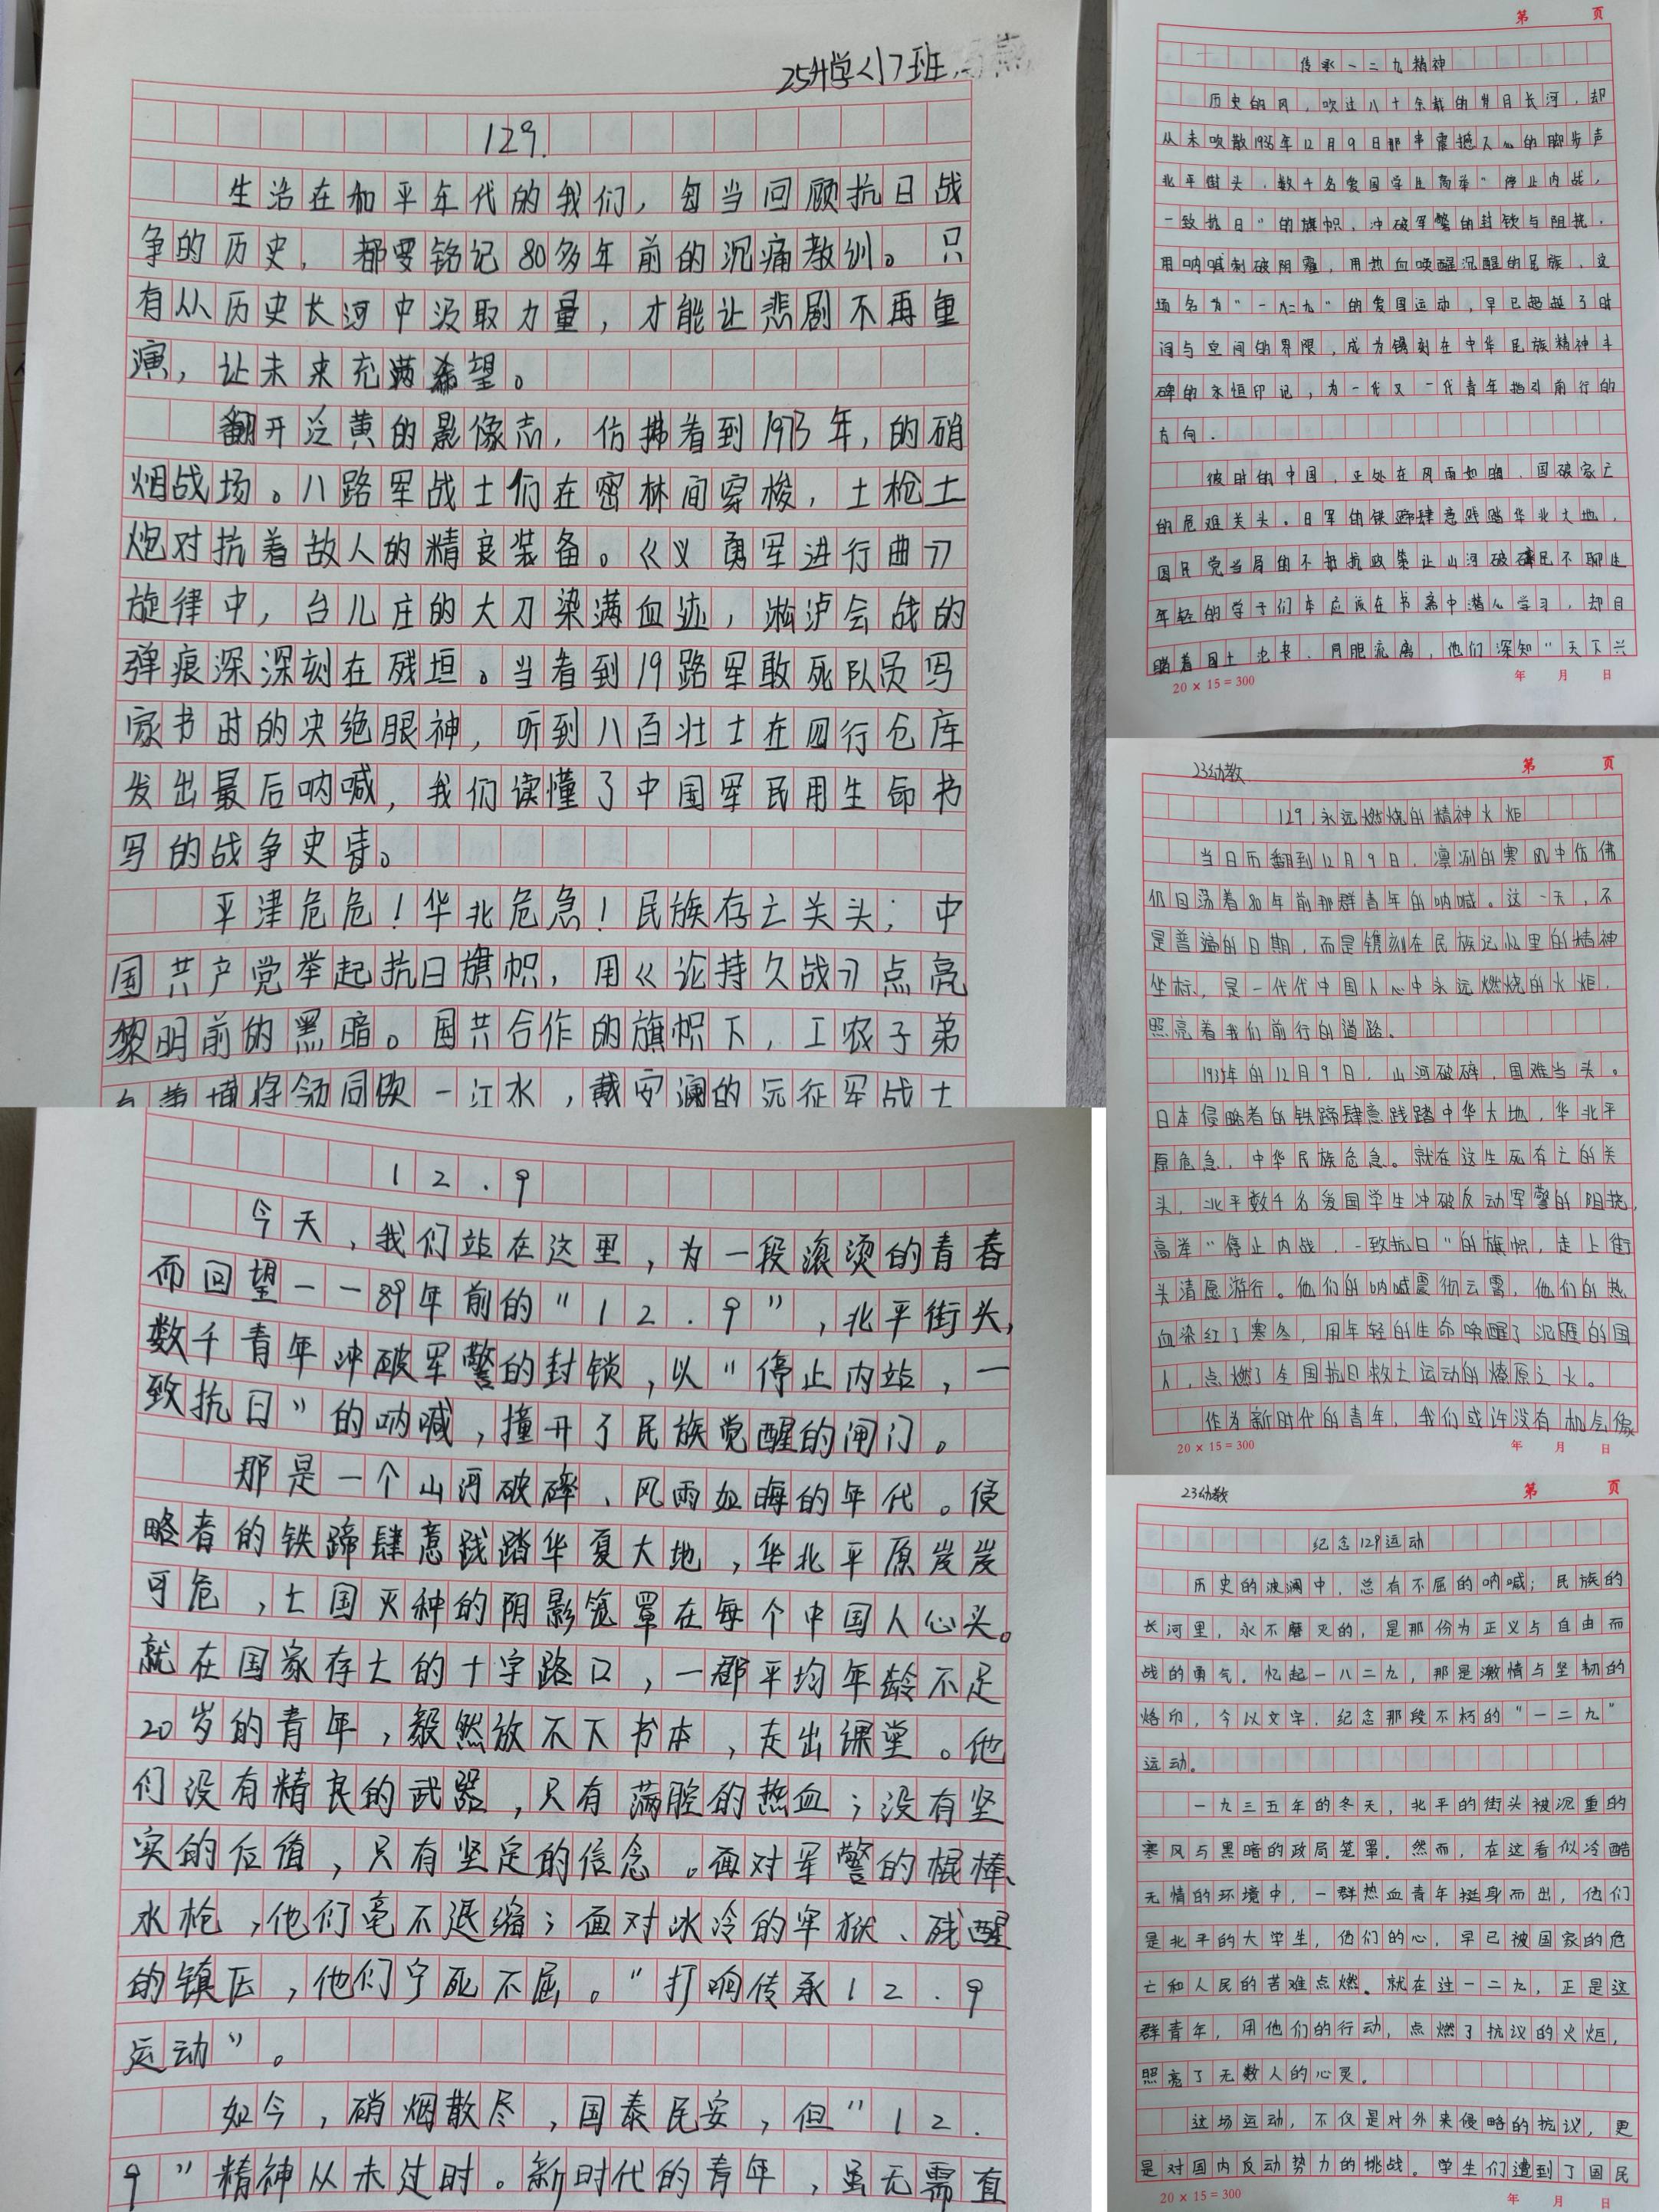 25升学<1>班
129.
生活在和平年代的我们，每当回顾抗日战
争的历史，都要铭记80多年前的沉痛教训。只
有从历史长河中汲取力量，才能让悲剧不再重
演，让未来充满希望。
翻开泛黄的影像志，仿拂看到1973年，的硝
烟战场。八路军战士们在密林间穿梭，土枪土
炮对抗着敌人的精良装备。《义勇军进行曲》
旋律中，台儿庄的大刀染满血迹，淞沪会战的
弹痕深深刻在残垣。当看到19路军敢死队员写
家书时的决绝眼神，听到八百壮士在四行仓库
发出最后呐喊，我们读懂了中国军民用生命书
写的战争史诗。
平津危危！华北危急！民族存亡关头；中
国共产党举起抗日旗帜，用《论持久战》点亮
黎明前的黑暗。国共合作的旗帜下，工农子弟
与黄埔将领同饮一江水，戴安澜的远征军战士
12.9
今天，我们站在这里，为一段滚烫的青春
而回望——89年前的“12.9”，北平街头，
数千青年冲破军警的封锁，以“停止内站，一
致抗日”的呐喊，撞开了民族觉醒的闸门。
那是一个山河破碎、风雨如晦的年代。侵
略者的铁蹄肆意践踏华夏大地，华北平原岌岌
可危，亡国灭种的阴影笼罩在每个中国人心头。
就在国家存亡的十字路口，一群平均年龄不足
20岁的青年，毅然放不下书本，走出课堂。他
们没有精良的武器，只有满腔的热血；没有坚
实的后盾，只有坚定的信念。面对军警的棍棒、
水枪，他们毫不退缩；面对冰冷的牢狱、残醒
的镇压，他们宁死不屈。“打响传承12.9
运动”。
如今，硝烟散尽，国泰民安，但“12.
9”精神从未过时。新时代的青年，虽无需直
第 页
传承一二九精神
历史的风，吹过八十余载的岁月长河，却
从未吹散1935年12月9日那串震撼人心的脚步声
北平街头，数千名爱国学生高举“停止内战，
一致抗日”的旗帜，冲破军警的封锁与阻挠，
用呐喊刺破阴霾，用热血唤醒沉醒的民族，这
场名为“一二九”的爱国运动，早已超越了时
间与空间的界限，成为镌刻在中华民族精神丰
碑的永恒印记，为一代又一代青年指引前行的
方向．
彼时的中国，正处在风雨如晦，国破家亡
的危难关头。日军的铁蹄肆意践踏华北大地，
国民党当局的不抵抗政策让山河破碎民不聊生
年轻的学子们本应该在书斋中潜心学习，却目
睹着国土沦丧、同胞流离，他们深知“天下兴
20 × 15 = 300 年 月 日
23幼教 第 页
129，永远燃烧的精神火炬
当日历翻到12月9日，凛冽的寒风中仿佛
仍回荡着80年前那群青年的呐喊。这一天，不
是普遍的日期，而是镌刻在民族记忆里的精神
坐标，是一代代中国人心中永远燃烧的火炬，
照亮着我们前行的道路。
1935年的12月9日，山河破碎，国难当头。
日本侵略者的铁蹄肆意践踏中华大地，华北平
原危急，中华民族危急。就在这生死存亡的关
头，北平数千名爱国学生冲破反动军警的阻挠，
高举“停止内战，一致抗日”的旗帜，走上街
头清愿游行。他们的呐喊震彻云霄，他们的热
血染红了寒冬，用年轻的生命唤醒了沉睡的国
人，点燃了全国抗日救亡运动的燎原之火。
作为新时代的青年，我们或许没有机会像
20 × 15 = 300 年 月 日
23幼教 第 页
纪念129运动
历史的波澜中，总有不屈的呐喊；民族的
长河里，永不磨灭的，是那份为正义与自由而
战的勇气。忆起一八二九，那是激情与坚韧的
烙印，今以文字，纪念那段不朽的“一二九”
运动。
一九三五年的冬天，北平的街头被沉重的
寒风与黑暗的政局笼罩。然而，在这看似冷酷
无情的环境中，一群热血青年挺身而出，他们
是北平的大学生，他们的心，早已被国家的危
亡和人民的苦难点燃。就在过一二九，正是这
群青年，用他们的行动，点燃了抗议的火炬，
照亮了无数人的心灵。
这场运动，不仅是对外来侵略的抗议，更
是对国内反动势力的挑战。学生们遭到了国民
20 × 15 = 300 年 月 日